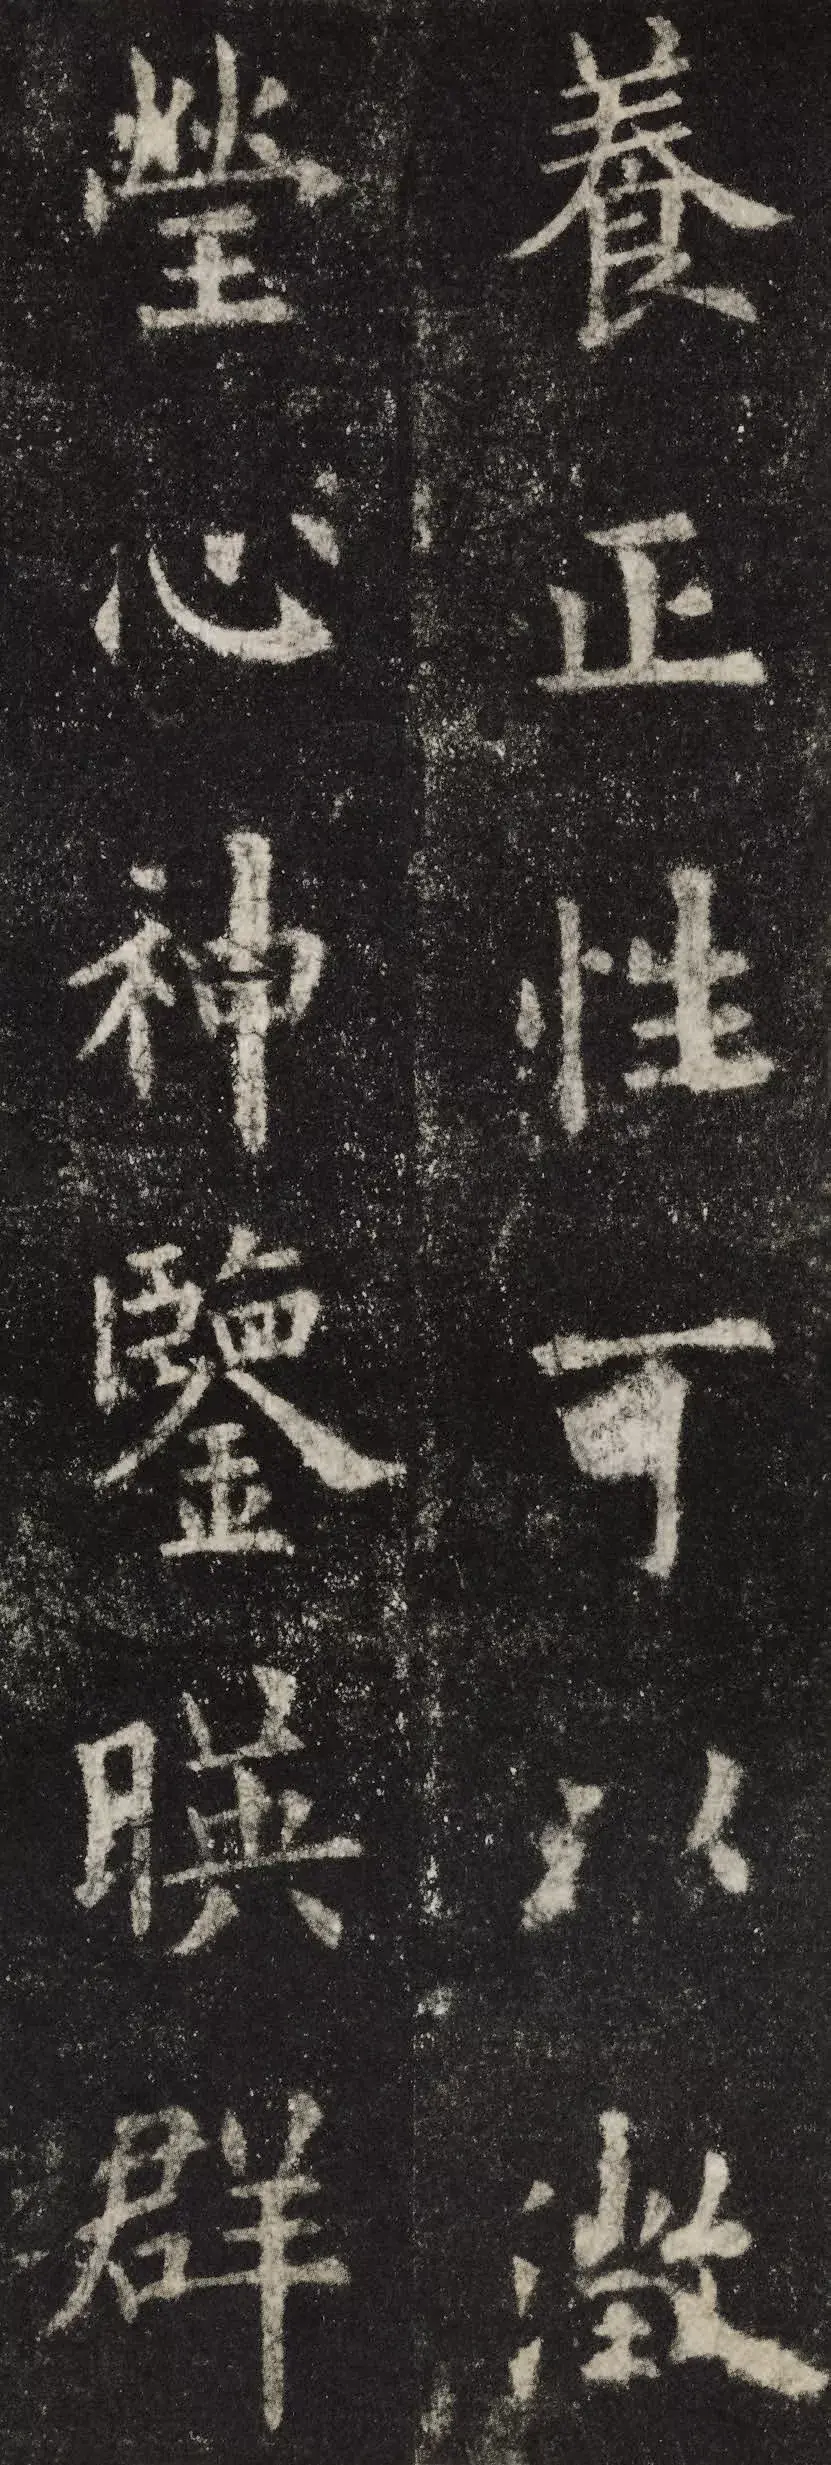 養正性可以澂
瑩心神鑒暎群